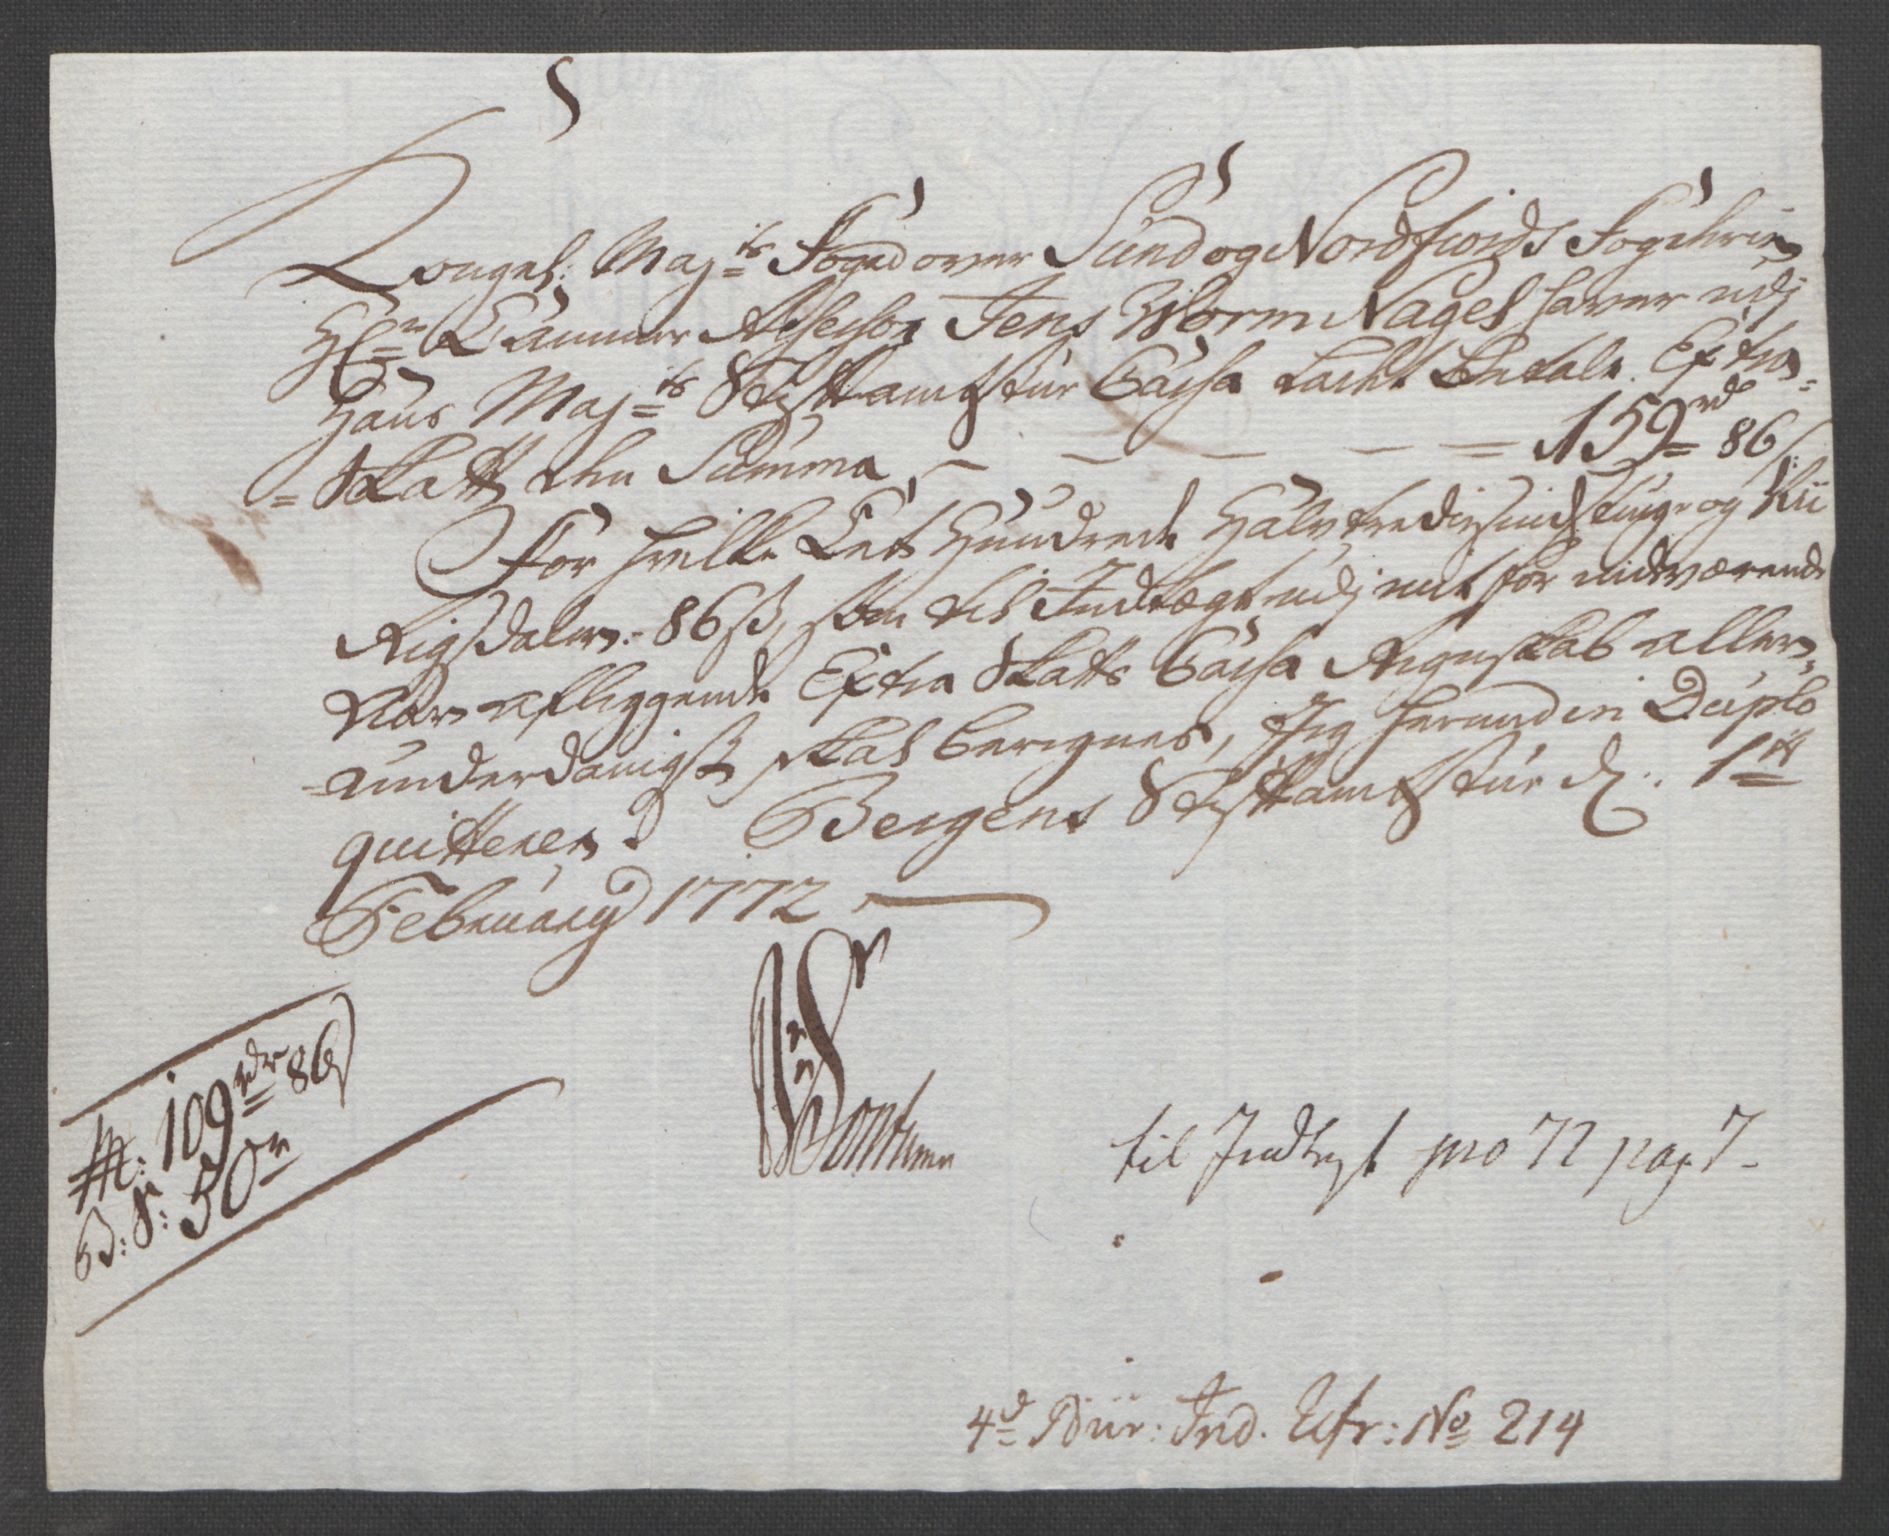 Kongel: Maj:ts Foged over Sünd og Nordfiords Fogderier
Hr: Cammer Assessor Jens Worm Nagel haver udj
Hans Maj:ts Stiftamtstue Cassa ladet betale Extra-
-Skatt den Summa — — — — 159 rd 86 s:
For hvilke Eet Hundrede Halvtrediesindstiuge og Nii
Rigsdaler 86 s, som til Indtægt udj mit for nidværende
Aar aflæggende Extra Skatts Cassa Regnskab aller-
-underdanigst skal beregnes, Jeg herved in Duplo
quitterer. Bergens Stiftamtstue d: 1ste
February 1772
Sontum
109 rdr 86 s
B: S: 50 r
til Indtegt pro 72 pag 7-
4d Bür: Ind. Efr: No 214